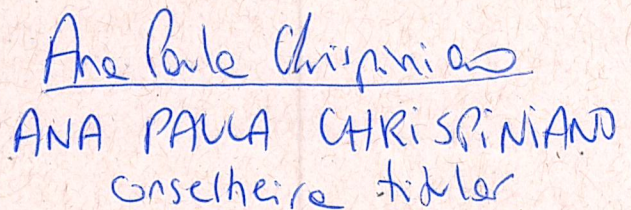 Ana Paula Chrispiniano
ANA PAULA CHRISPINIANO
conselheira titular